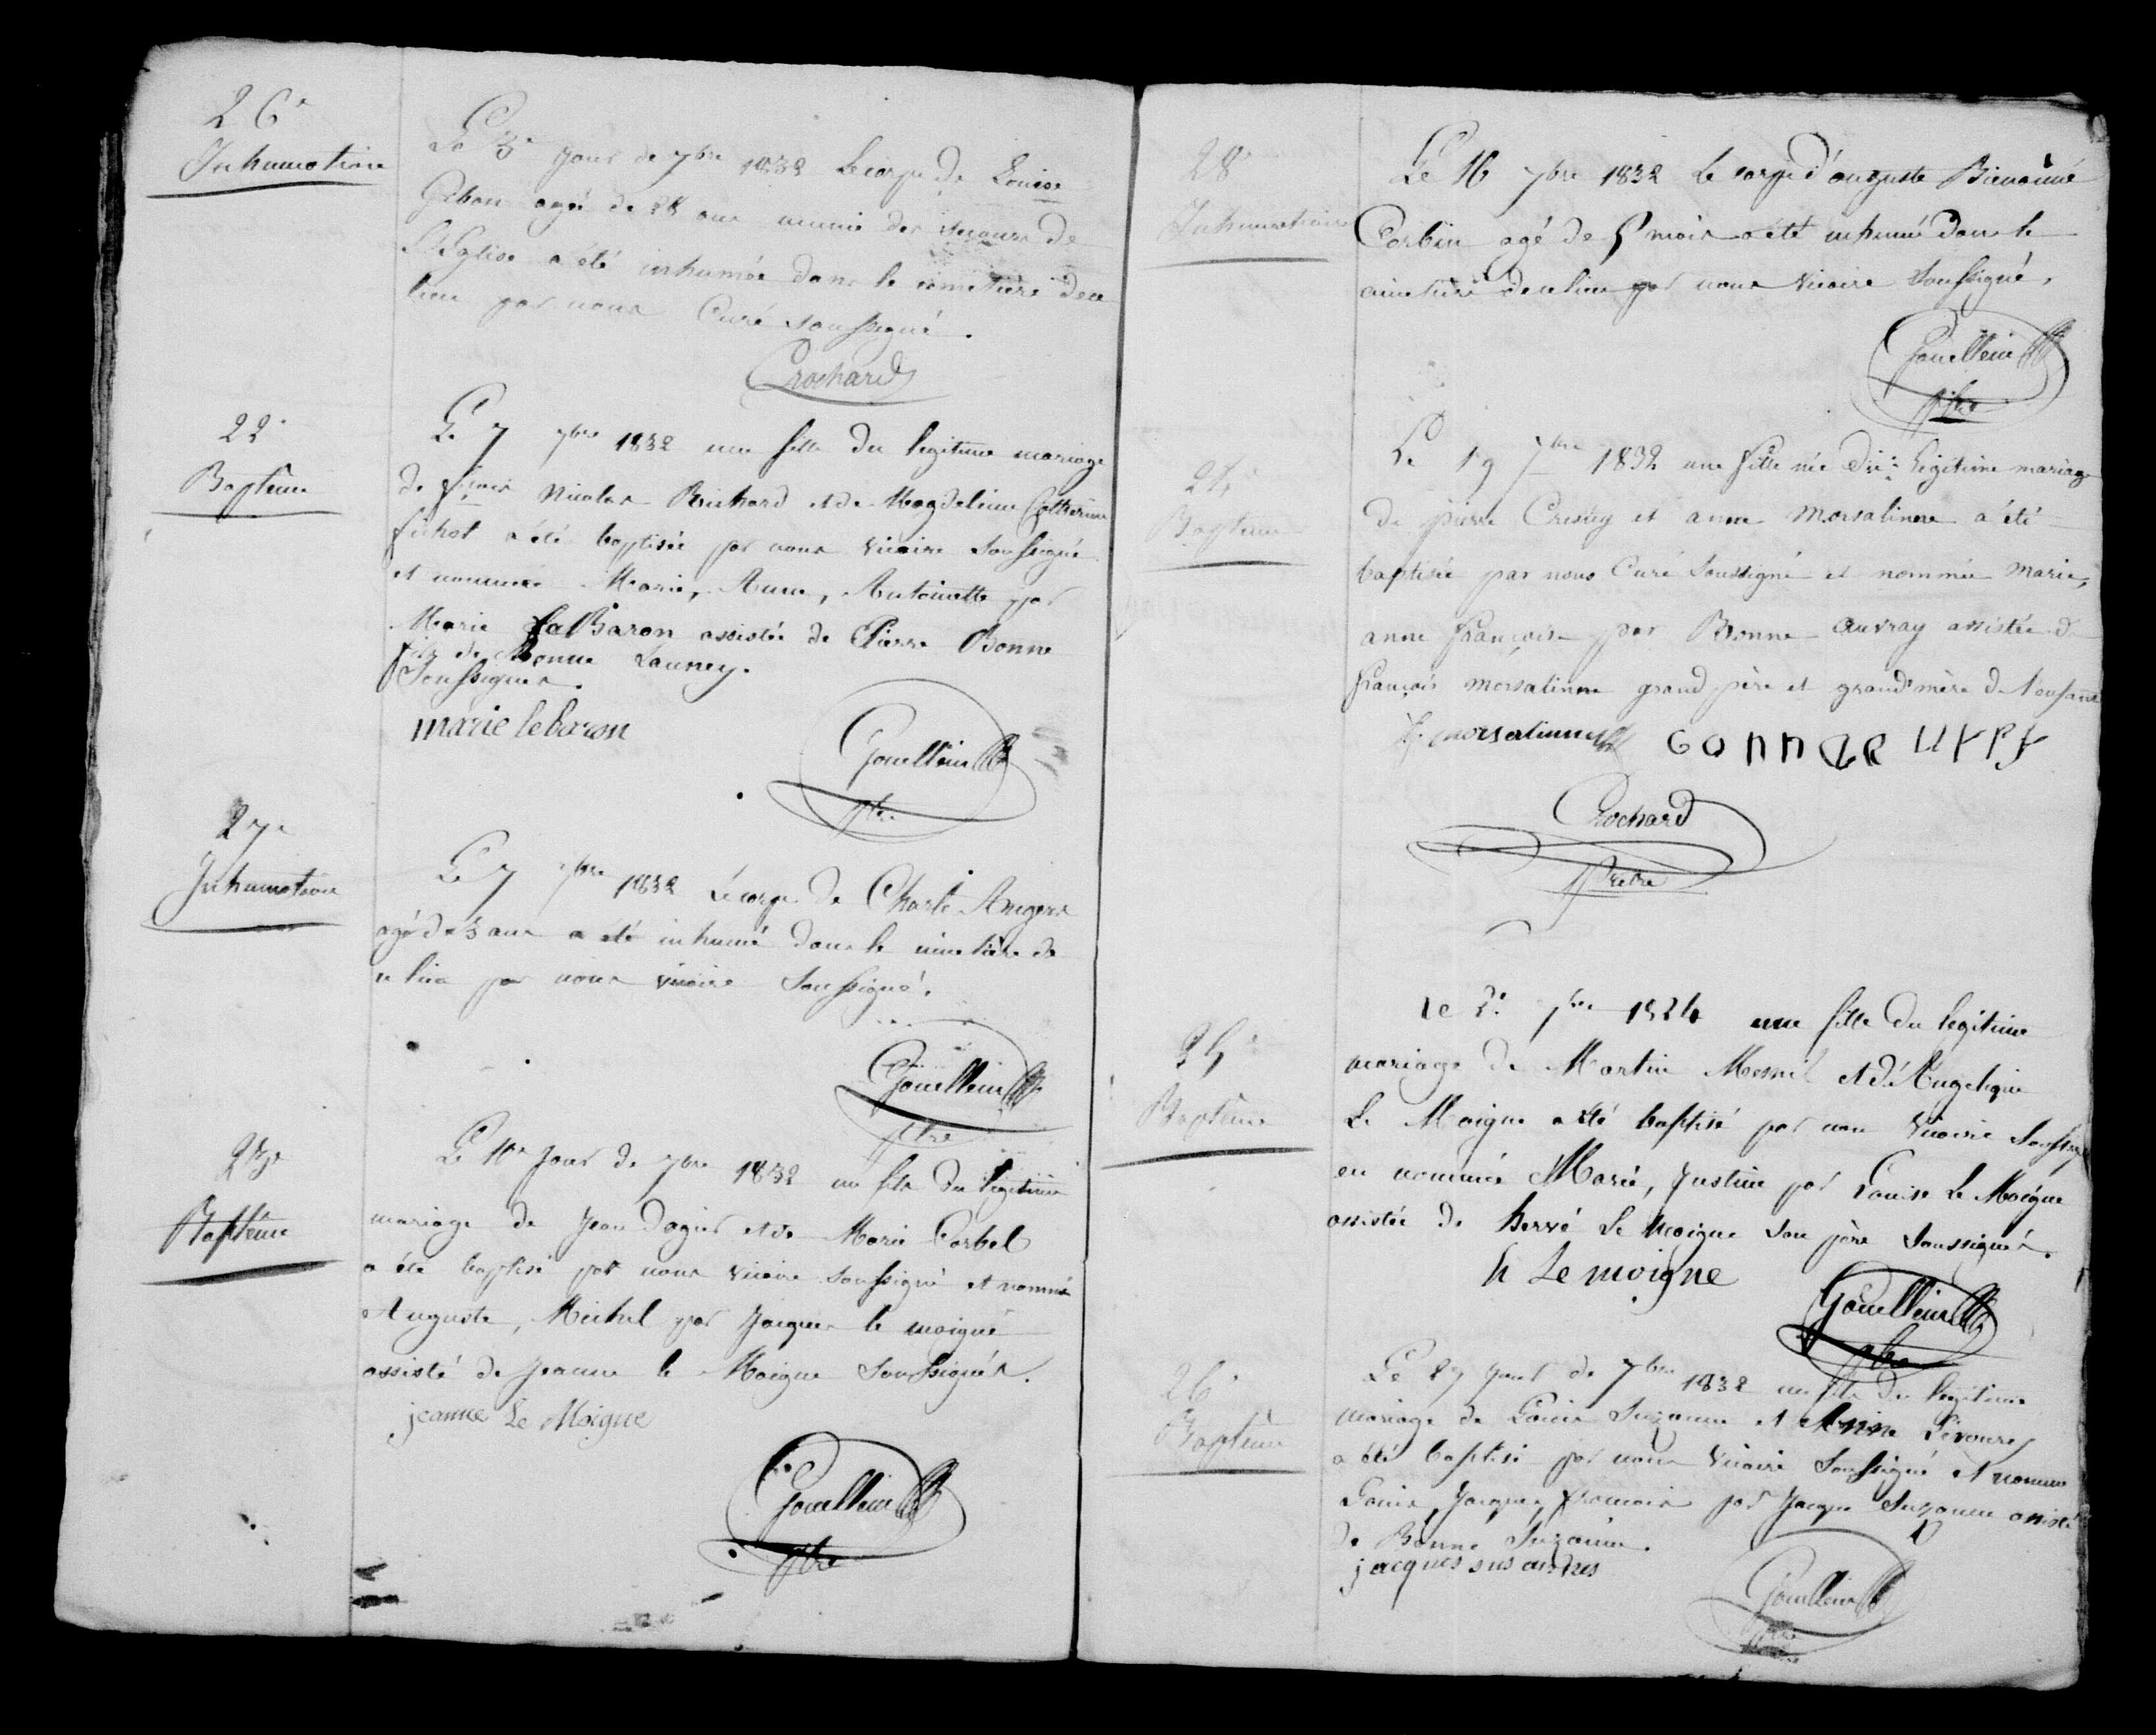 26e
Inhumation
Le 3e jour de 7bre 1832 Le corps de Louise
agé de 28 ans munie des secours de
L'Eglise a été inhumée dans le cimetière de ce
lieu par nous Curé soussigné.
Crochard
22e
Baptême
Le 7 7bre 1832 une fille du legitime mariage
de Nicolas Richard et de Magdeleine Catherine
a été baptisée par nous vicaire soussigné
et nommée Marie, Anne, Antoinette par
Marie Le Baron assistée de Pierre Bonne
fils de Bonne Launey.
Soussignés.
marie le baron
Gouellein
ptre
27e
Inhumation
Le 7 7bre 1832 Le corps de Charle Angers
agé de 3 ans a été inhumé dans le cimetière de
ce lieu par nous vicaire soussigné.
Gouellein
ptre
23e
Baptême
Le jour de 7bre 1832 un fils du legitime
mariage de Jean Dagier et de Marie Corbel
a été baptisé par nous vicaire soussigné et nommé
Auguste, Michel par Jacques le moigne
assisté de Jeanne le Moigne soussignés.
jeanne Le Moigne
Gouellein
ptre
28e
Inhumation
Le 16 7bre 1832 Le corps d'auguste Bienaimé
Corbin agé de 5 mois a été inhumé dans le
cimetière de ce lieu par nous vicaire soussigné.
Gouellein
ptre
24e
Baptême
Le 19 7bre 1832 une fille née du légitime mariage
de pierre Cresley et anne morsalinne a été
baptisée par nous Curé soussigné et nommée marie,
anne françoise par Bonne auvray assistée de
françois morsalinne grand père et grand'mère de l'enfant
f. morsalinne
Crochard
Prêtre
25e
Baptême
le 7bre 1824 une fille du legitime
mariage de Martin Mesnil et d'Angelique
Le Moigne a été baptisé par nous vicaire soussigné
en nommée Marie, Justine par Louise Le Moigne
assistée de hervé Le Moigne son père soussignés.
h Le moigne
Gouellein
ptre
26e
Baptême
Le 27 jour de 7bre 1832 un fils du legitime
mariage de Louis Suzanne et
a été baptisé par nous vicaire soussigné et nommé
Louis, Jacques, francois par Jacques Suzanne assisté
de Bonne Suzanne.
jacques
Gouellein
ptre